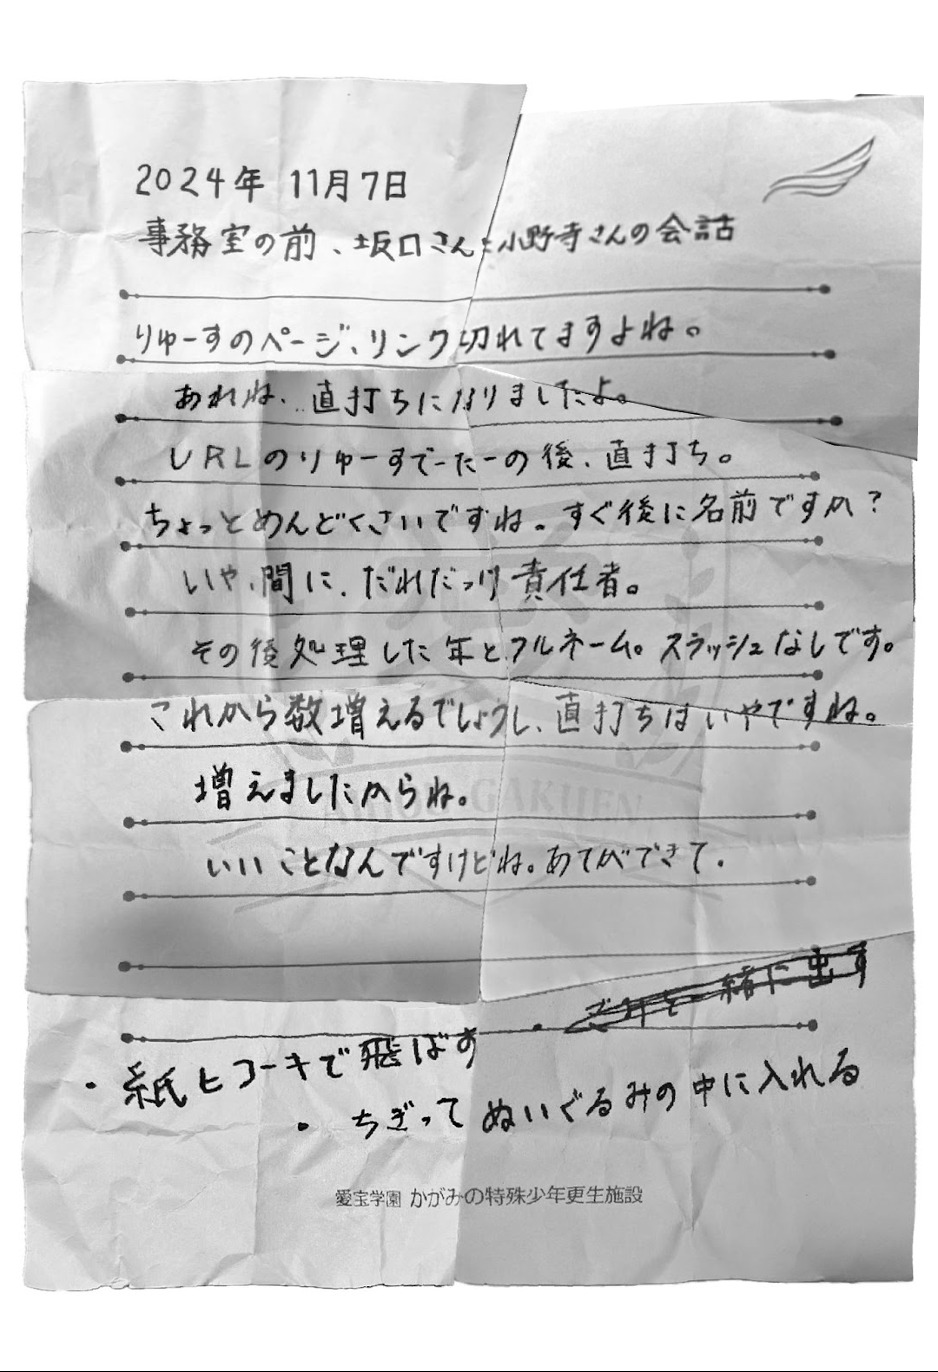 2024年 11月7日
事務室の前、坂口さんと小野寺さんの会話
りゅーすのページ、リンク切れてますよね。
あれね、直打ちになりましたよ。
URLのりゅーすでーたーの後、直打ち。
ちょっとめんどくさいですね。すぐ後に名前ですか?
いや、間に、だれだっけ責任者。
その後処理した年とフルネーム。スラッシュなしです。
これから数増えるでしょうし、直打ちはいやですね。
増えましたからね。
いいことなんですけどね。あてができて.
AIHOU GAKUEN
・ ゴミと一緒に出す
・紙ヒコーキで飛ばす
・ちぎってぬいぐるみの中に入れる
愛宝学園 かがみの特殊少年更生施設